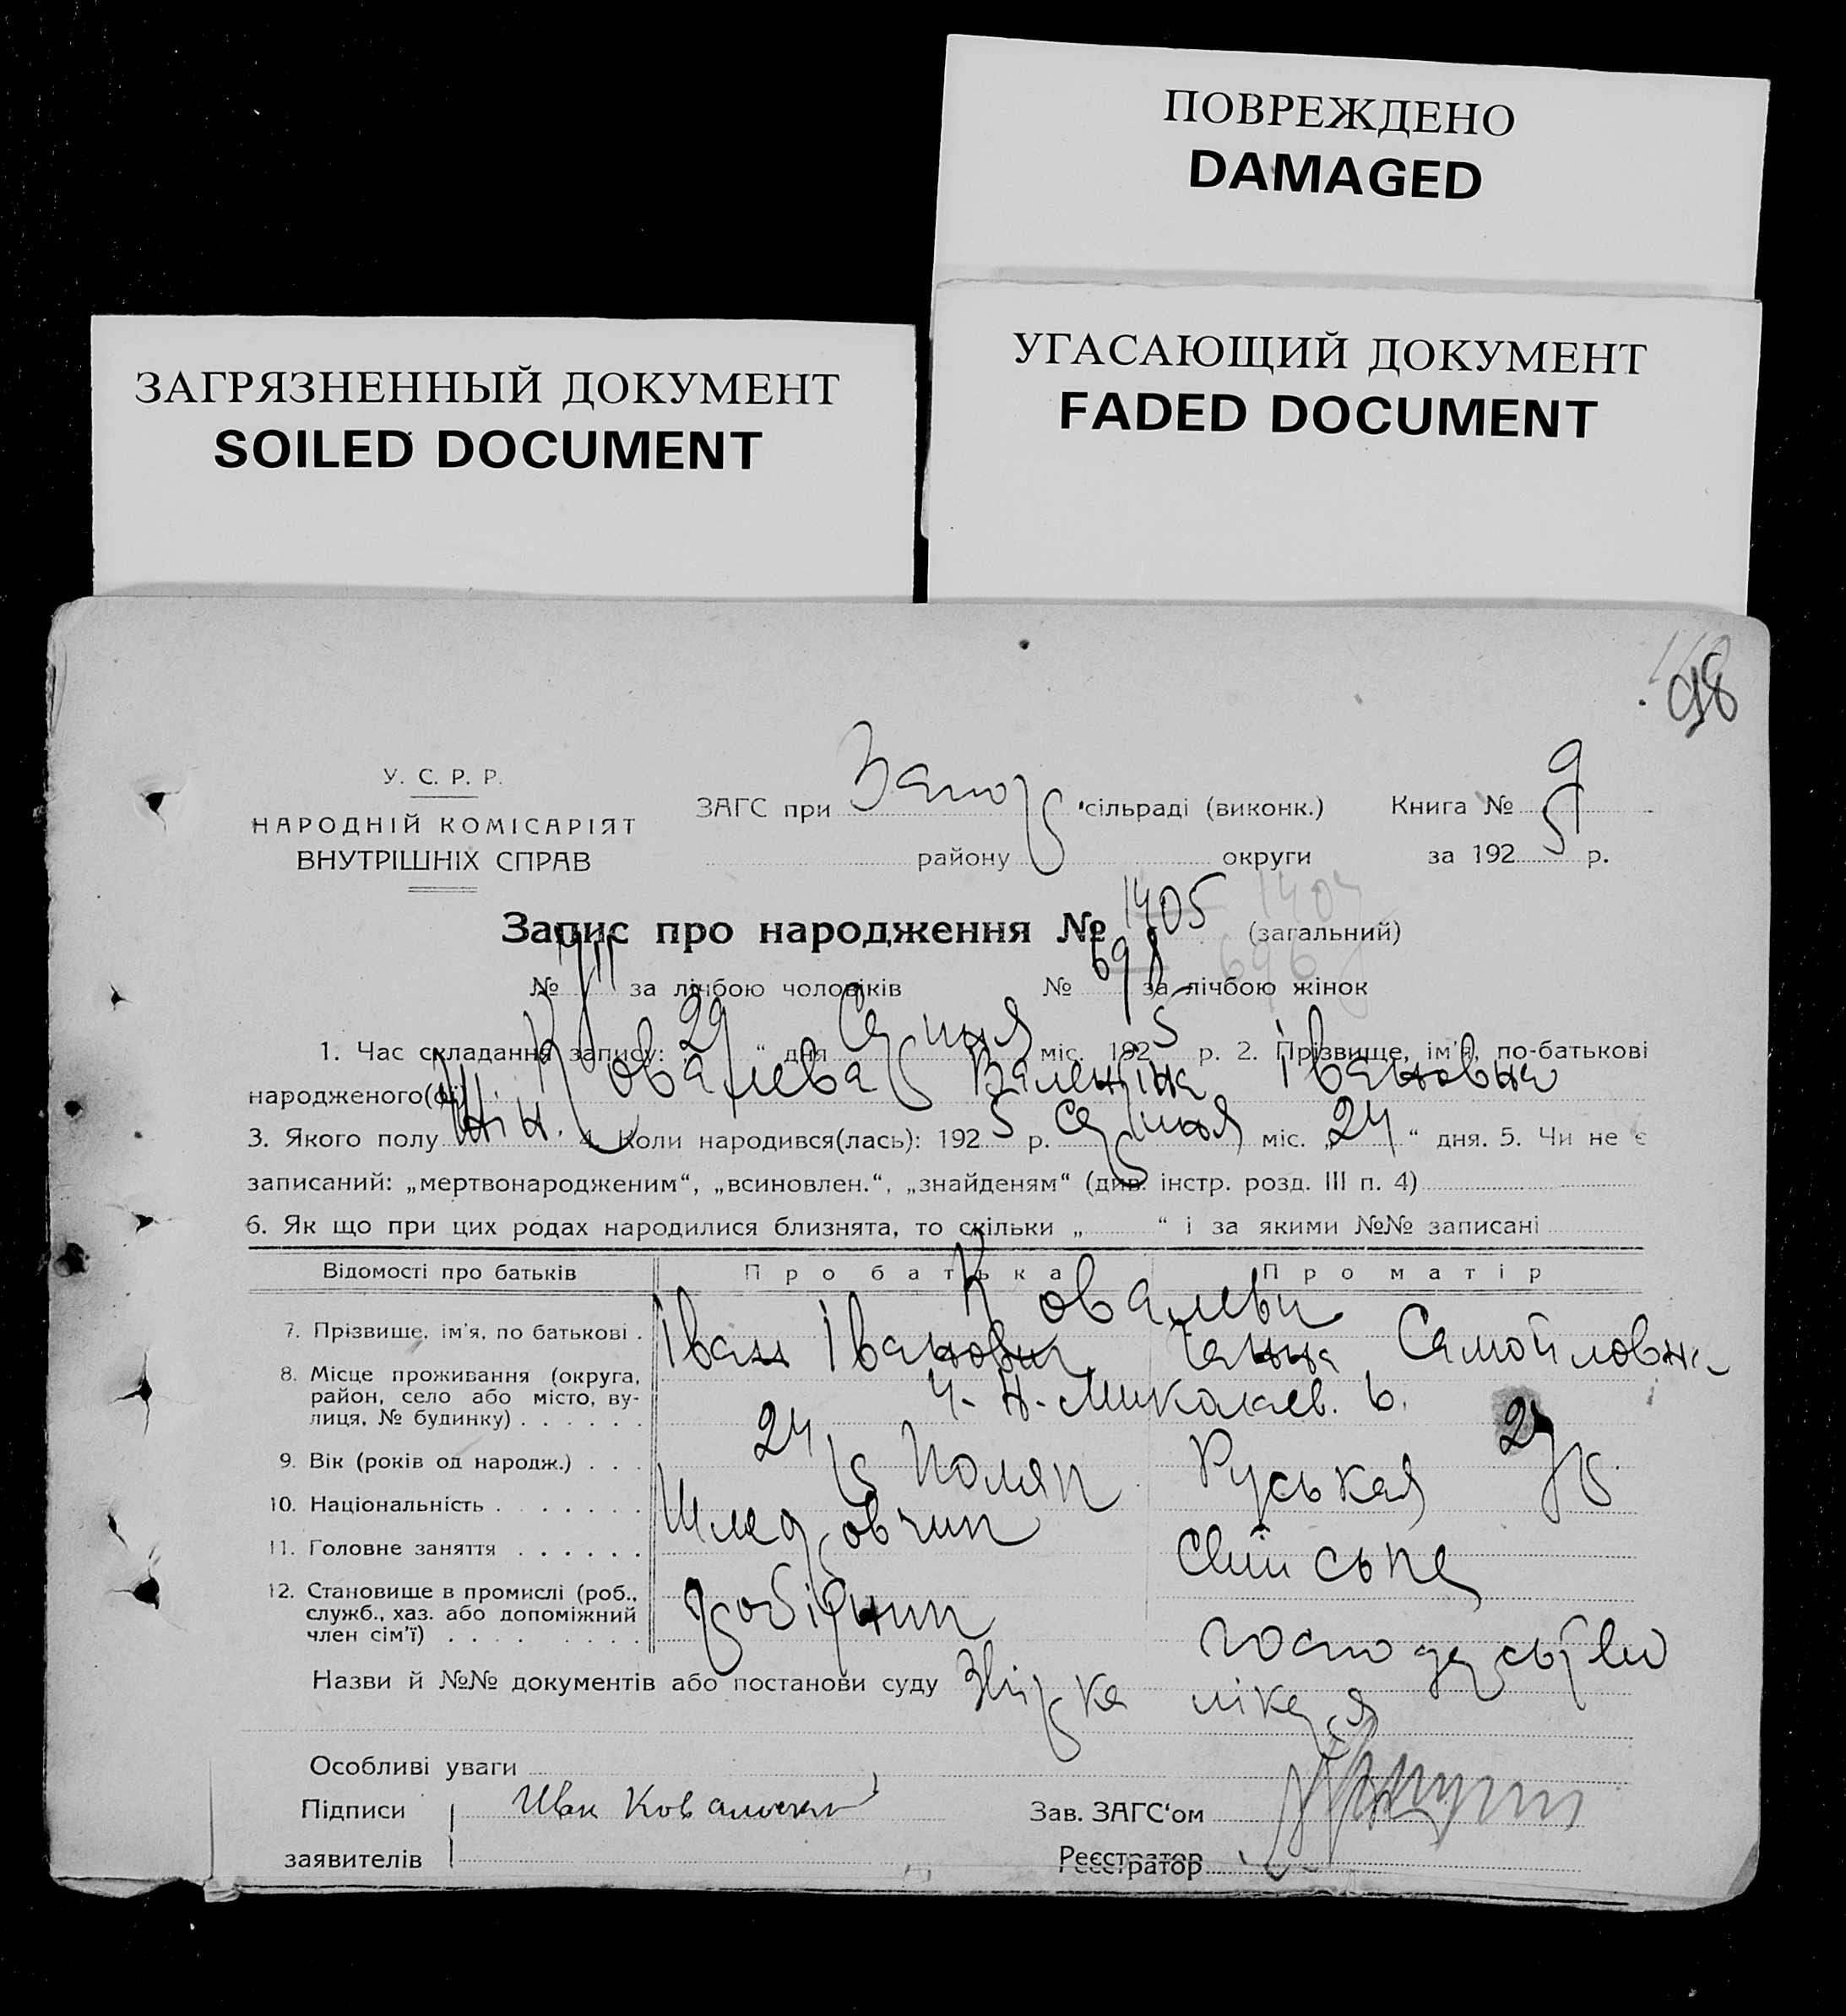 ПОВРЕЖДЕНО
DAMAGED
УГАСАЮЩИЙ ДОКУМЕНТ
FADED DOCUMENT
ЗАГРЯЗНЕННЫЙ ДОКУМЕНТ
SOILED DOCUMENT
98
У. С. Р. Р.
НАРОДНІЙ КОМІСАРІЯТ
ВНУТРІШНІХ СПРАВ
ЗАГС при Запор сільраді (виконк.) Книга № 9
району округи за 1925 р.
Запис про народження № 1405 (загальний)
№ за лічбою чоловіків № 698 за лічбою жінок
1. Час складання запису: „29“ дня Серпня міс. 1925 р. 2. Прізвище, ім'я, по-батькові
народженого(ої) Ковалева Валентіна Івановна
3. Якого полу Жін. 4. Коли народився(лась): 1925 р. Серпня міс. „24“ дня. 5. Чи не є
записаний: „мертвонародженим“, „всиновлен.“, „знайденям“ (див. інстр. розд. III п. 4)
6. Як що при цих родах народилися близнята, то скільки „ “ і за якими №№ записані
Відомості про батьків Про батька Про матір
Ковалеви
7. Прізвище, ім'я, по батькові . Іван Іванович Ганна Самойловна
8. Місце проживання (округа, район, село або місто, вулиця, № будинку) . . . . . . Миколаев. 6.
9. Вік (років од народж.) . . . 24 р. 24 р.
10. Національність . . . . . . . Поляк Руськая
11. Головне заняття . . . . . . Сли́ське
12. Становище в промислі (роб., служб., хаз. або допоміжний член сім'ї) . . . . . . . . робітник господарство
Назви й №№ документів або постанови суду Звірка лікаря
Особливі уваги
Підписи Иван Ковалевский Зав. ЗАГС'ом
заявителів Реєстратор